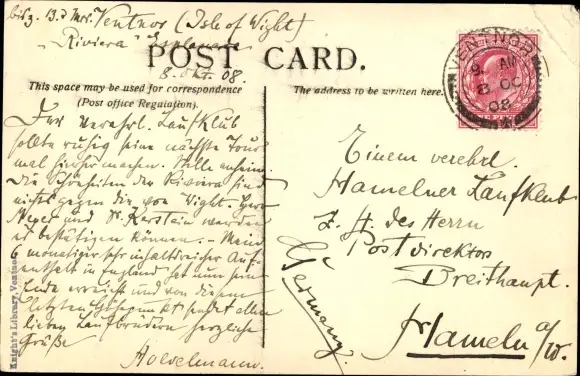 bis z. 13. d. Mts. Ventnor (Isle of Wight)
"Riviera" Esplanade
POST CARD.
8. Okt. 08.
This space may be used for correspondence
(Post office Regulation).
The address to be written here.
VENTNOR
9 AM
8 OC
08
Der verehrl. Laufklub
sollte ruhig seine nächste Tour
mal hierher machen. Stelle anheim.
Die Schönheiten der Riviera sind
nichts gegen die von Wight. Herr
Meyer und Dr. Kerstein werden
es bestätigen können. - Mein
6 monatiger sehr inhaltreicher Auf-
enthalt in England hat nun sein
Ende erreicht und von diesem
letzten sendet allen
lieben Laufbrüdern herzliche
Grüße
Hoevelmann.
Einem verehrl.
Hamelner Laufklub
z. H. des Herrn
Postdirektor
Breithaupt.
Hameln a/W.
Germany.
Knight's Library, Ventnor